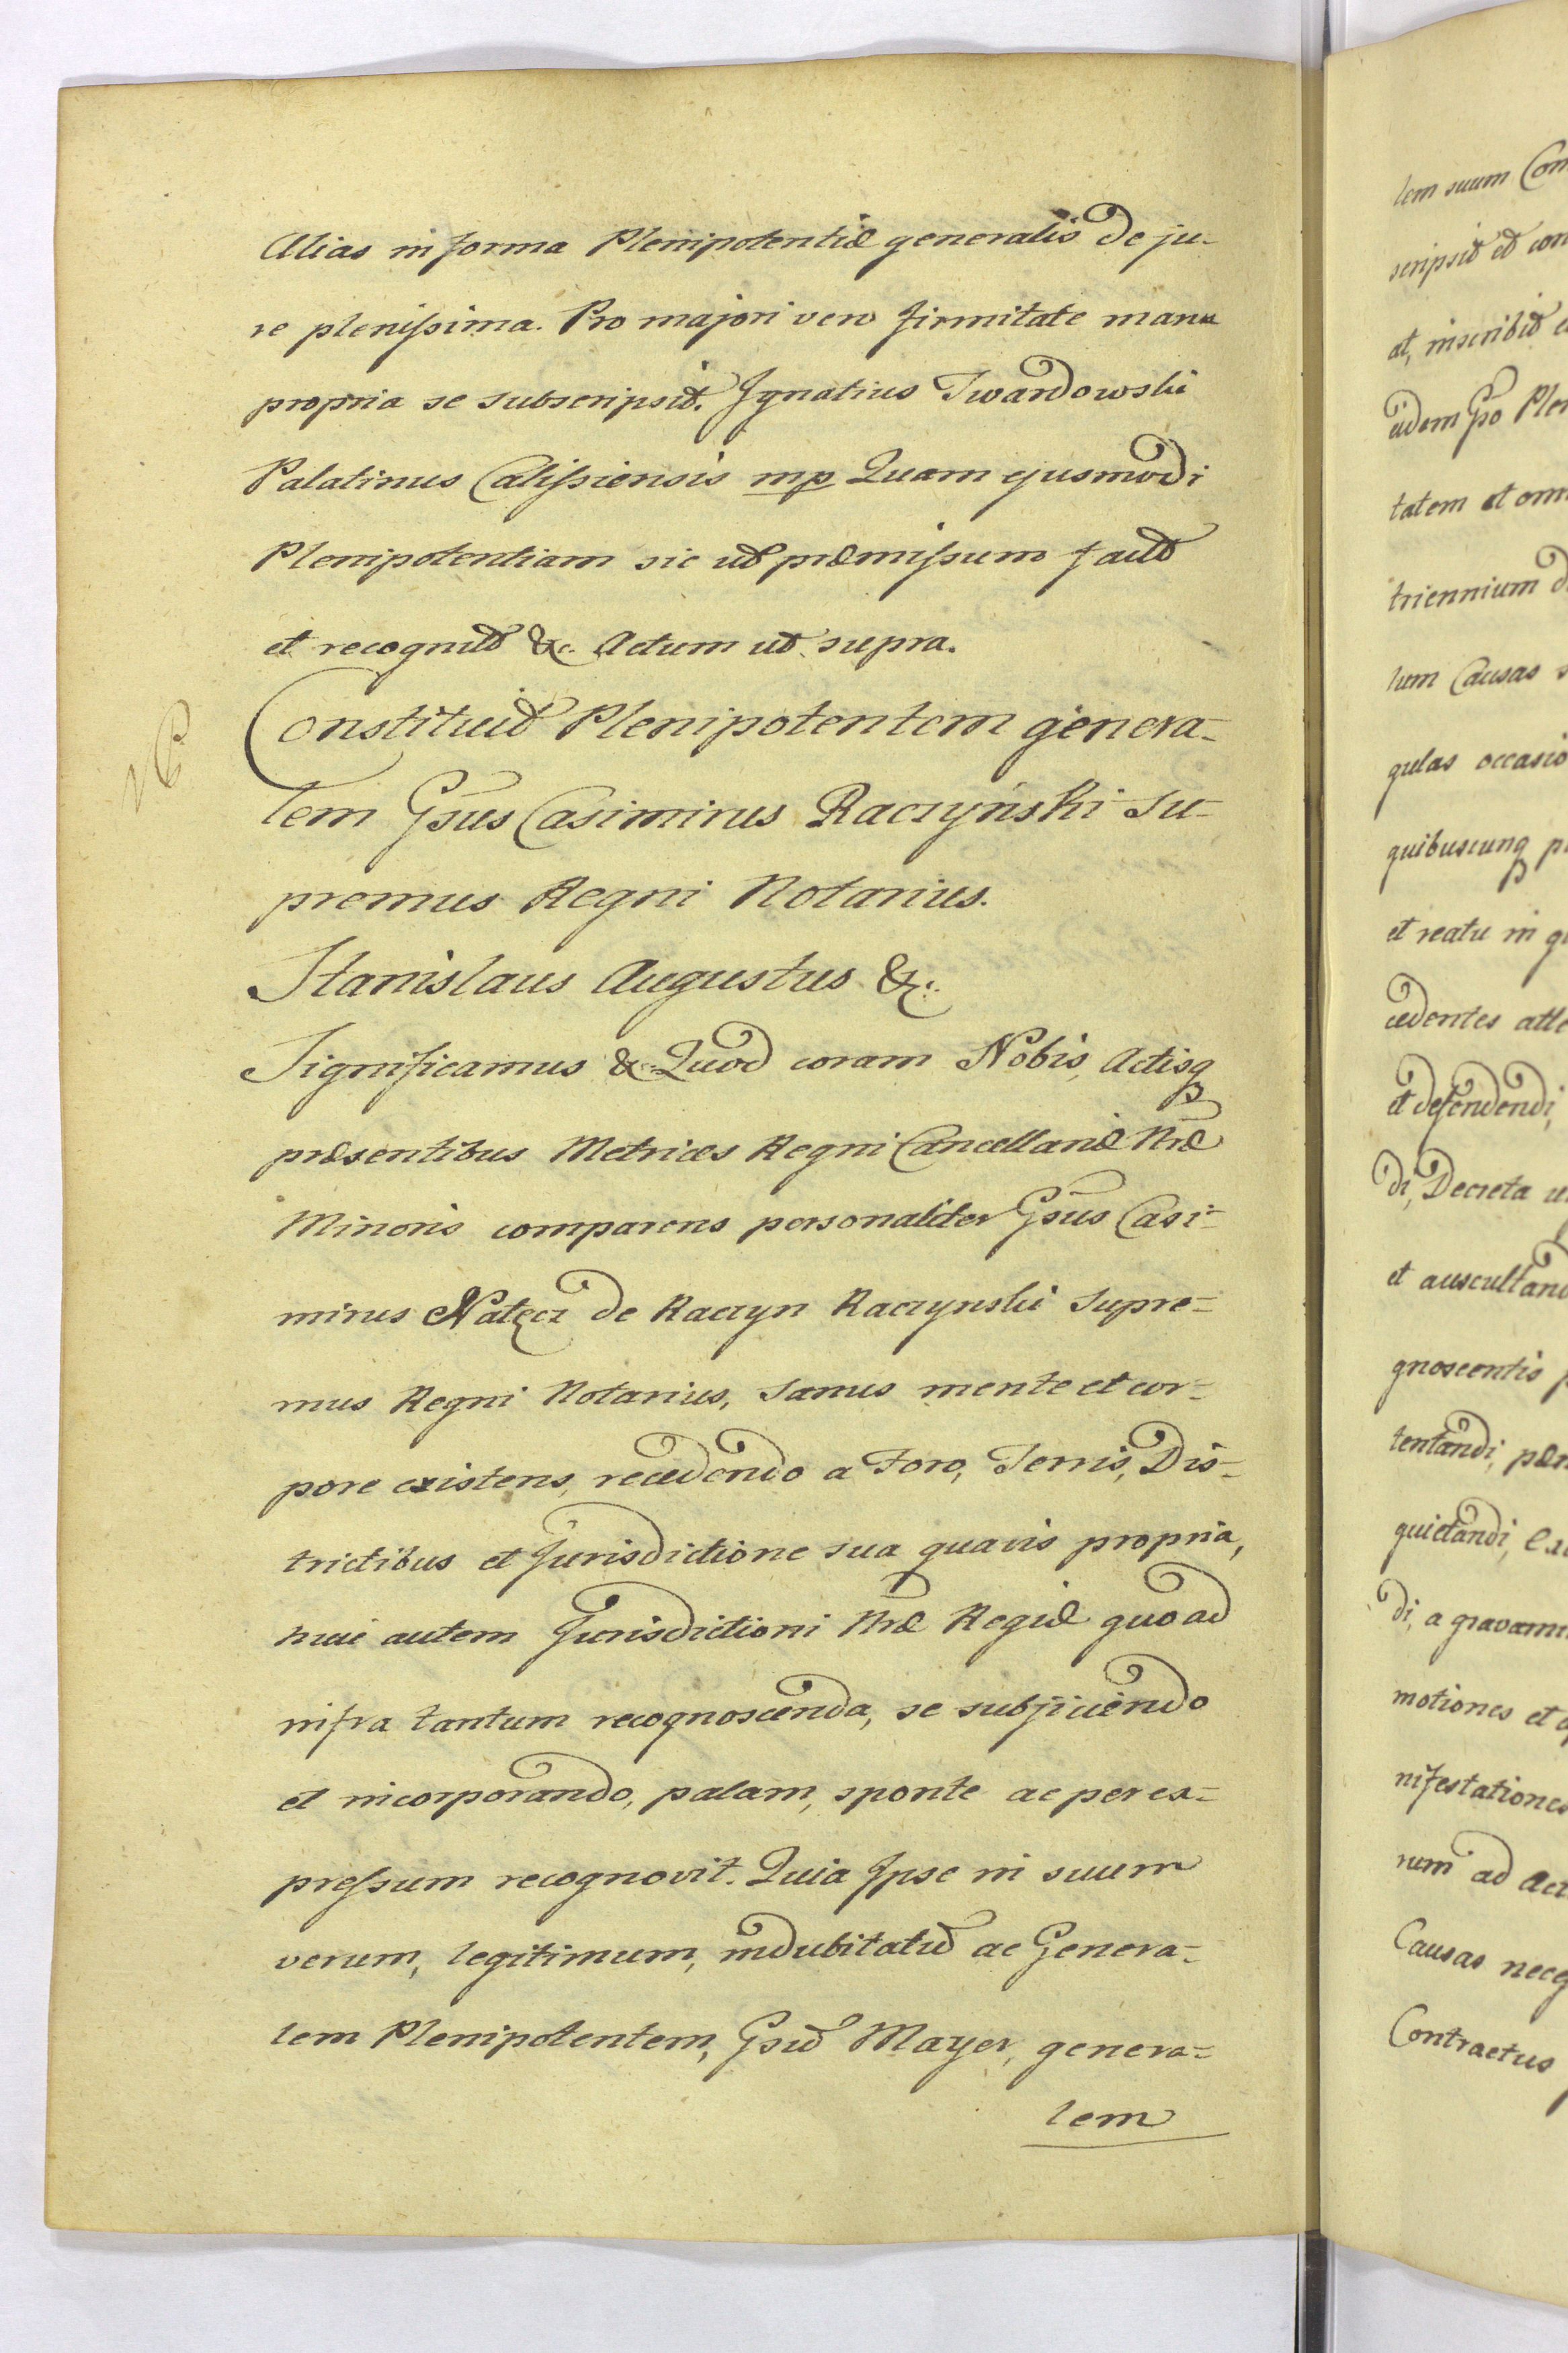 Alias in forma Plenipotentiæ generalis de ju-
re plenissima. Pro majori vero firmitate manu
propria se subscripsit. Ignatius Twardowski
Palatinus Calissiensis mp Quam ejusmodi
Plenipotentiam sic ut præmissum facit
et recognit &c. Actum ut supra.
Constituit Plenipotentem genera-
lem Gsus Casimirus Raczyński Su-
premus Regni Notarius.
Stanislaus Augustus &c.
Significamus &c. Quod coram Nobis, Actisq
præsentibus Metrices Regni Cancellariæ Nræ
Minoris comparens personaliter Gsus Casi-
mirus Nałęcz de Raczyn Raczynski Supre-
mus Regni Notarius, Sanus mente et cor-
pore existens, recedendo a Foro, Terris, Dis-
trictibus et Jurisdictione sua quavis propria,
huic autem Jurisdictioni Nræ Regiæ quo ad
infra tantum recognoscenda, se subjiciendo
et incorporando, palam, sponte ac per ex-
pressum recognovit. Quia Ipse in suum
verum, legitimum, indubitatū ac Genera-
lem Plenipotentem, Gsū Mayer, genera-
lem
lem suum
scripsit et con
at, inscribit
eidem Gso
tatem et
triennium
lum Causas
gulas
quibuscunq
et reatu in
cedentes
et defendendi,
di, Decreta
et
gnoscentis
tentandi,
quietandi,
di, a
motiones et
nifestationes
rum ad
Causas
Contractus